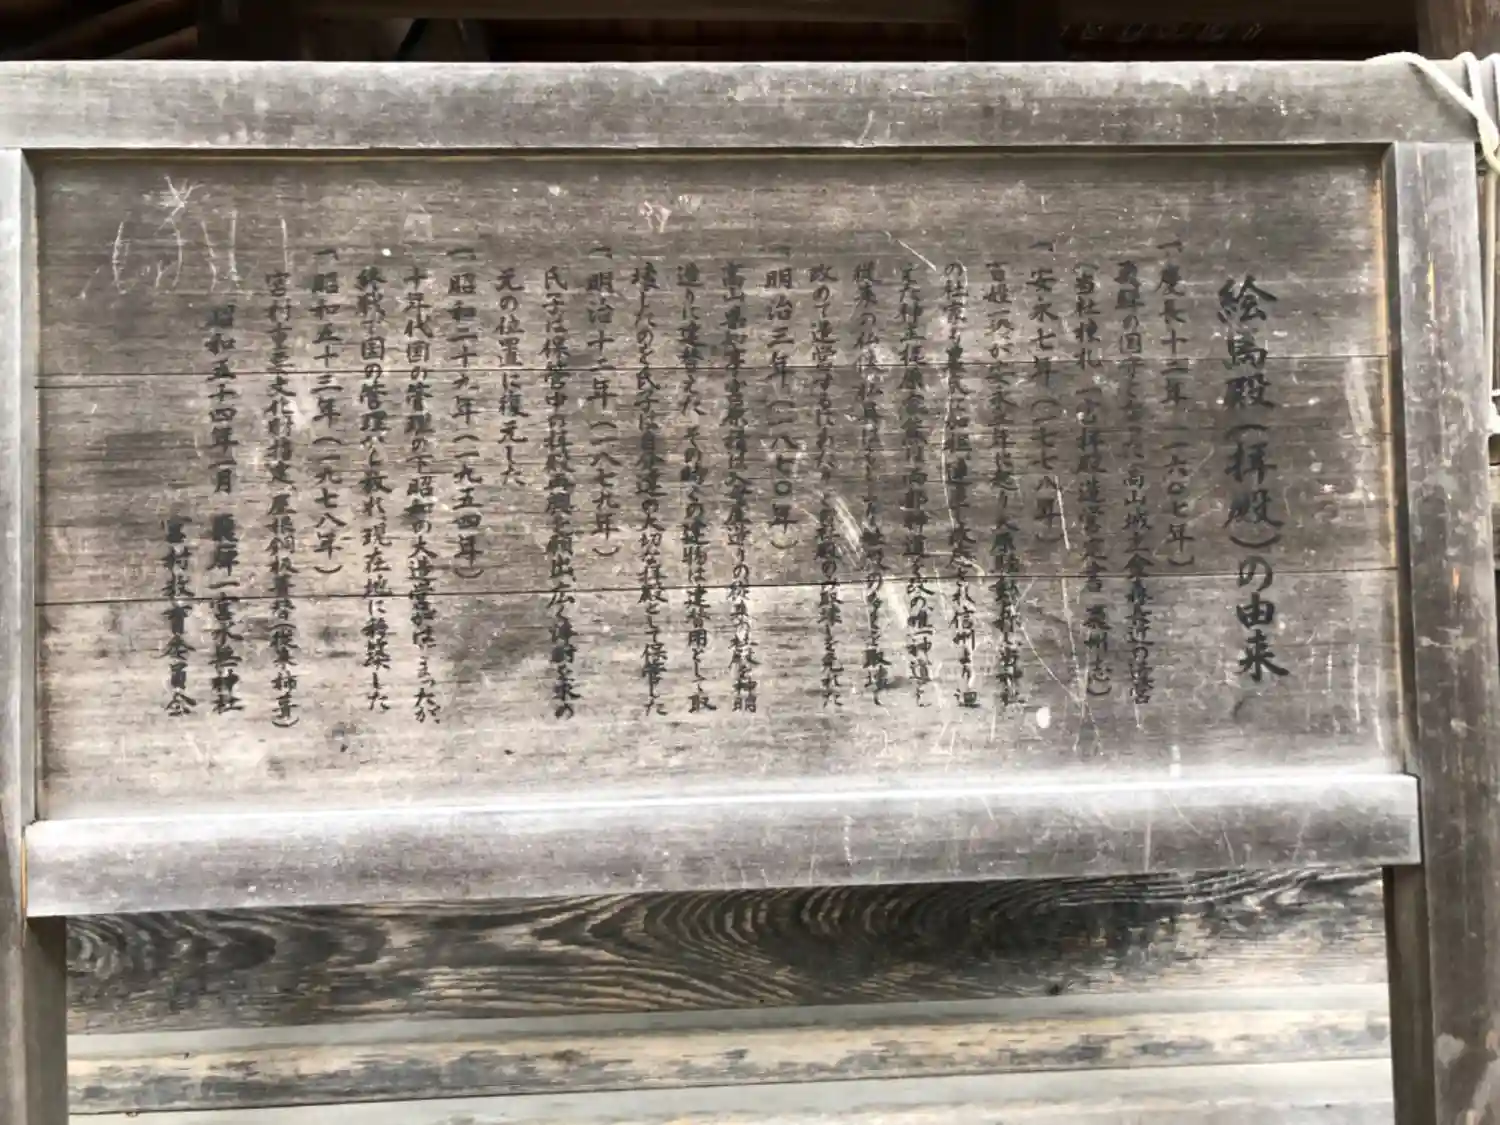 絵馬殿（拝殿）の由来
一、慶長十二年（一六〇七年）
飛騨の国守となった高山城主金森長近の造営
（当社棟札「一宮拝殿造営定書」飛州志）
一、安永七年（一七七八年）
百姓一揆が安永二年に起り大原騒動と称し当神社
の社家も農民に加担連座し改廃され信州より迎
えた神主梶原家熊は両部神道を改め唯一神道とし
従来の仏像、仏具はもとより社殿のほとんど取壊し
改めて造営するにあたりこの殿の取壊しを免れた
一、明治三年（一八七〇年）
高山県知事宮原積は入母屋造りの従来の社殿を神明
造りに建替えた その時この建物は建替用として取
壊したのを氏子は自原造の大切な拝殿として保管した
一、明治十二年（一八七九年）
氏子は保管中の拝殿再興を願出、広く浄財を求め
元の位置に復元した
一、昭和二十九年（一九五四年）
十年代国の管理の下、昭和の大造営がはじまったが、
終戦で国の管理がし放れ現在地に移築した
一、昭和五十三年（一九七八年）
宮村重要文化財指定、屋根銅板葺替（従来柿葺）
昭和五十四年一月 飛騨一宮水無神社
宮村教育委員会